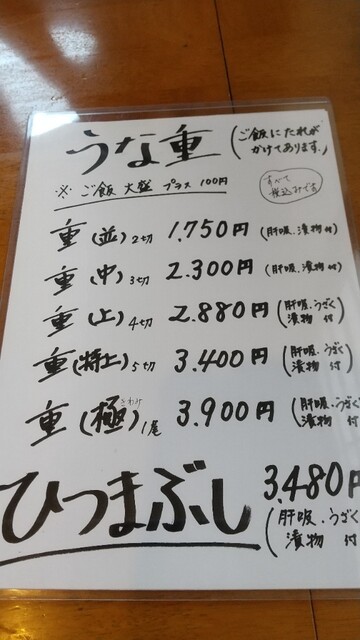 うな重 (ご飯にたれが
かけてあります。)
※ ご飯 大盛 プラス 100円
すべて
税込みです
重(並) 2切 1.750円 (肝吸.漬物付)
重(中) 3切 2.300円 (肝吸.漬物付)
重(上) 4切 2.880円 (肝吸.うざく
漬物 付)
重(特上) 5切 3.400円 (肝吸.うざく
漬物 付)
きわみ
重(極) 1尾 3.900円 (肝吸.うざく
漬物 付)
ひつまぶし 3.480円
(肝吸.うざく
漬物 付